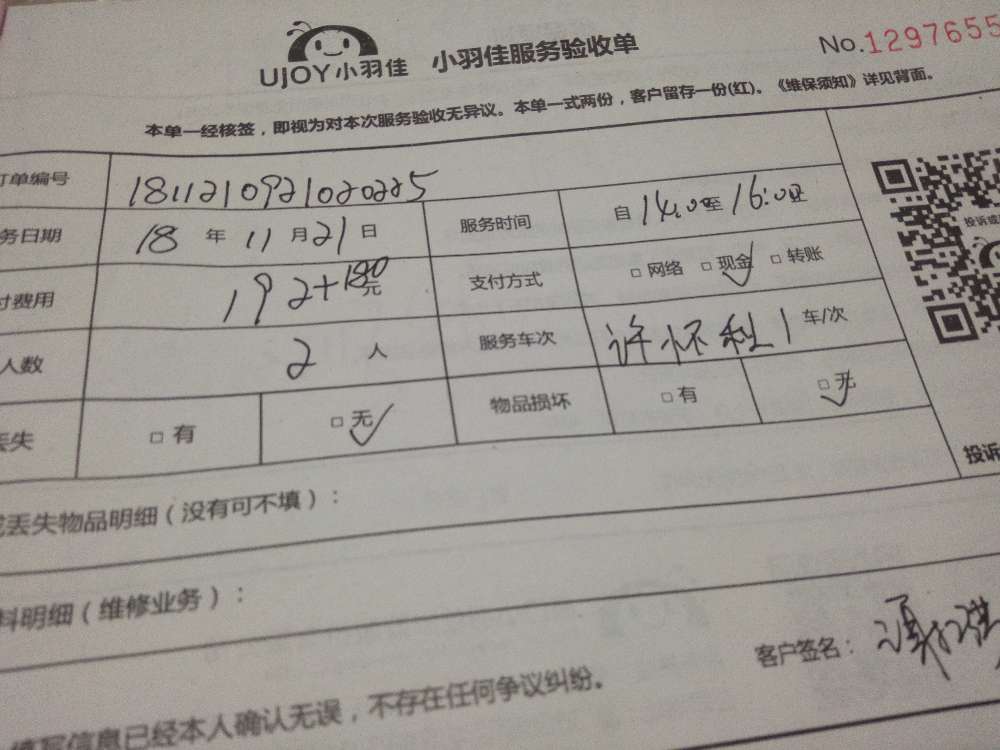 UJOY小羽佳 小羽佳服务验收单 No.1297655
本单一经核签，即视为对本次服务验收无异议。本单一式两份，客户留存一份(红)。《维保须知》详见背面。
订单编号 1811210921020225
务日期 18 年 11 月 21 日 服务时间 自 14:00 至 16:00
付费用 192+180 元 支付方式 □ 网络 □ 现金 □ 转账
人数 2 人 服务车次 许怀利 1 车/次
丢失 □ 有 □ 无 物品损坏 □ 有 □ 无
投诉
丢失物品明细（没有可不填）：
料明细（维修业务）：
客户签名：
填写信息已经本人确认无误，不存在任何争议纠纷。